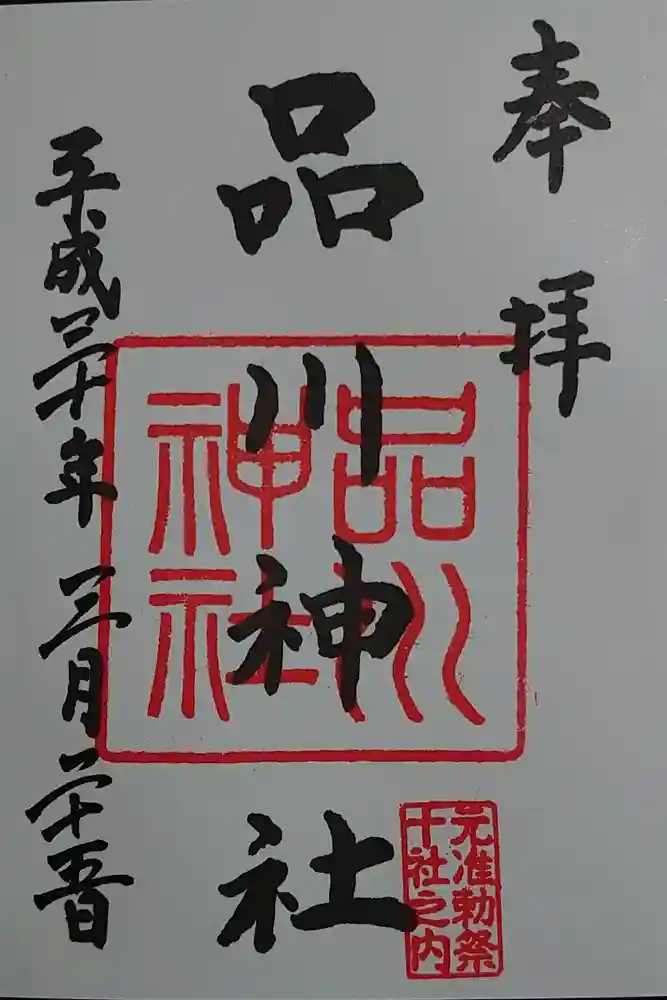 奉拝
品川神社
品川神社
元准勅祭
十社之内
平成三十年三月二十五日